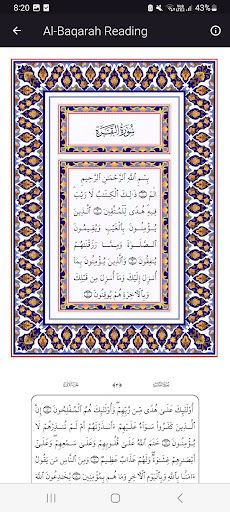 8:20
43%
Al-Baqarah Reading
سُورَةُ الْبَقَرَةِ
بِسْمِ ٱللَّهِ ٱلرَّحْمَٰنِ ٱلرَّحِيمِ
الٓمٓ ۝ ذَٰلِكَ ٱلْكِتَٰبُ لَا رَيْبَ
فِيهِ هُدًى لِّلْمُتَّقِينَ ۝ ٱلَّذِينَ
يُؤْمِنُونَ بِٱلْغَيْبِ وَيُقِيمُونَ
ٱلصَّلَوٰةَ وَمِمَّا رَزَقْنَٰهُمْ
يُنفِقُونَ ۝ وَٱلَّذِينَ يُؤْمِنُونَ بِمَآ
أُنزِلَ إِلَيْكَ وَمَآ أُنزِلَ مِن قَبْلِكَ
وَبِٱلْءَاخِرَةِ هُمْ يُوقِنُونَ ۝
أُو۟لَٰٓئِكَ عَلَىٰ هُدًى مِّن رَّبِّهِمْ وَأُو۟لَٰٓئِكَ هُمُ ٱلْمُفْلِحُونَ ۝ إِنَّ
ٱلَّذِينَ كَفَرُوا۟ سَوَآءٌ عَلَيْهِمْ ءَأَنذَرْتَهُمْ أَمْ لَمْ تُنذِرْهُمْ لَا
يُؤْمِنُونَ ۝ خَتَمَ ٱللَّهُ عَلَىٰ قُلُوبِهِمْ وَعَلَىٰ سَمْعِهِمْ وَعَلَىٰٓ
أَبْصَٰرِهِمْ غِشَٰوَةٌ وَلَهُمْ عَذَابٌ عَظِيمٌ ۝ وَمِنَ ٱلنَّاسِ مَن يَقُولُ
ءَامَنَّا بِٱللَّهِ وَبِٱلْيَوْمِ ٱلْءَاخِرِ وَمَا هُم بِمُؤْمِنِينَ ۝ يُخَٰدِعُونَ ٱللَّهَ